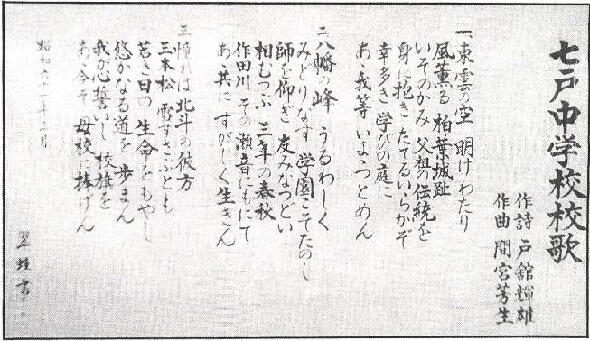 七戸中学校校歌
作詩 戸舘輝雄
作曲 間宮芳生
一、東雲の空 明けわたり
風薫る 柏葉城趾
いそのかみ 父祖の伝統を
身に抱き たてるいらかぞ
幸多き 学びの庭に
あゝ我等 いよゝつとめん
二、八幡の峰 うるわしく
みどりなす 学園こそたのし
師を仰ぎ 友みなつどい
相むつぶ 三年の春秋
作田川 その瀬音にもにて
あゝ共に すがしく生きん
三、憧れは 北斗の彼方
三本松 雪すさぶとも
若き日の 生命をもやし
悠かなる道を 歩まん
我が心 誓いし 校旗を
あゝ今ぞ 母校に捧げん
昭和六十二年三月
書